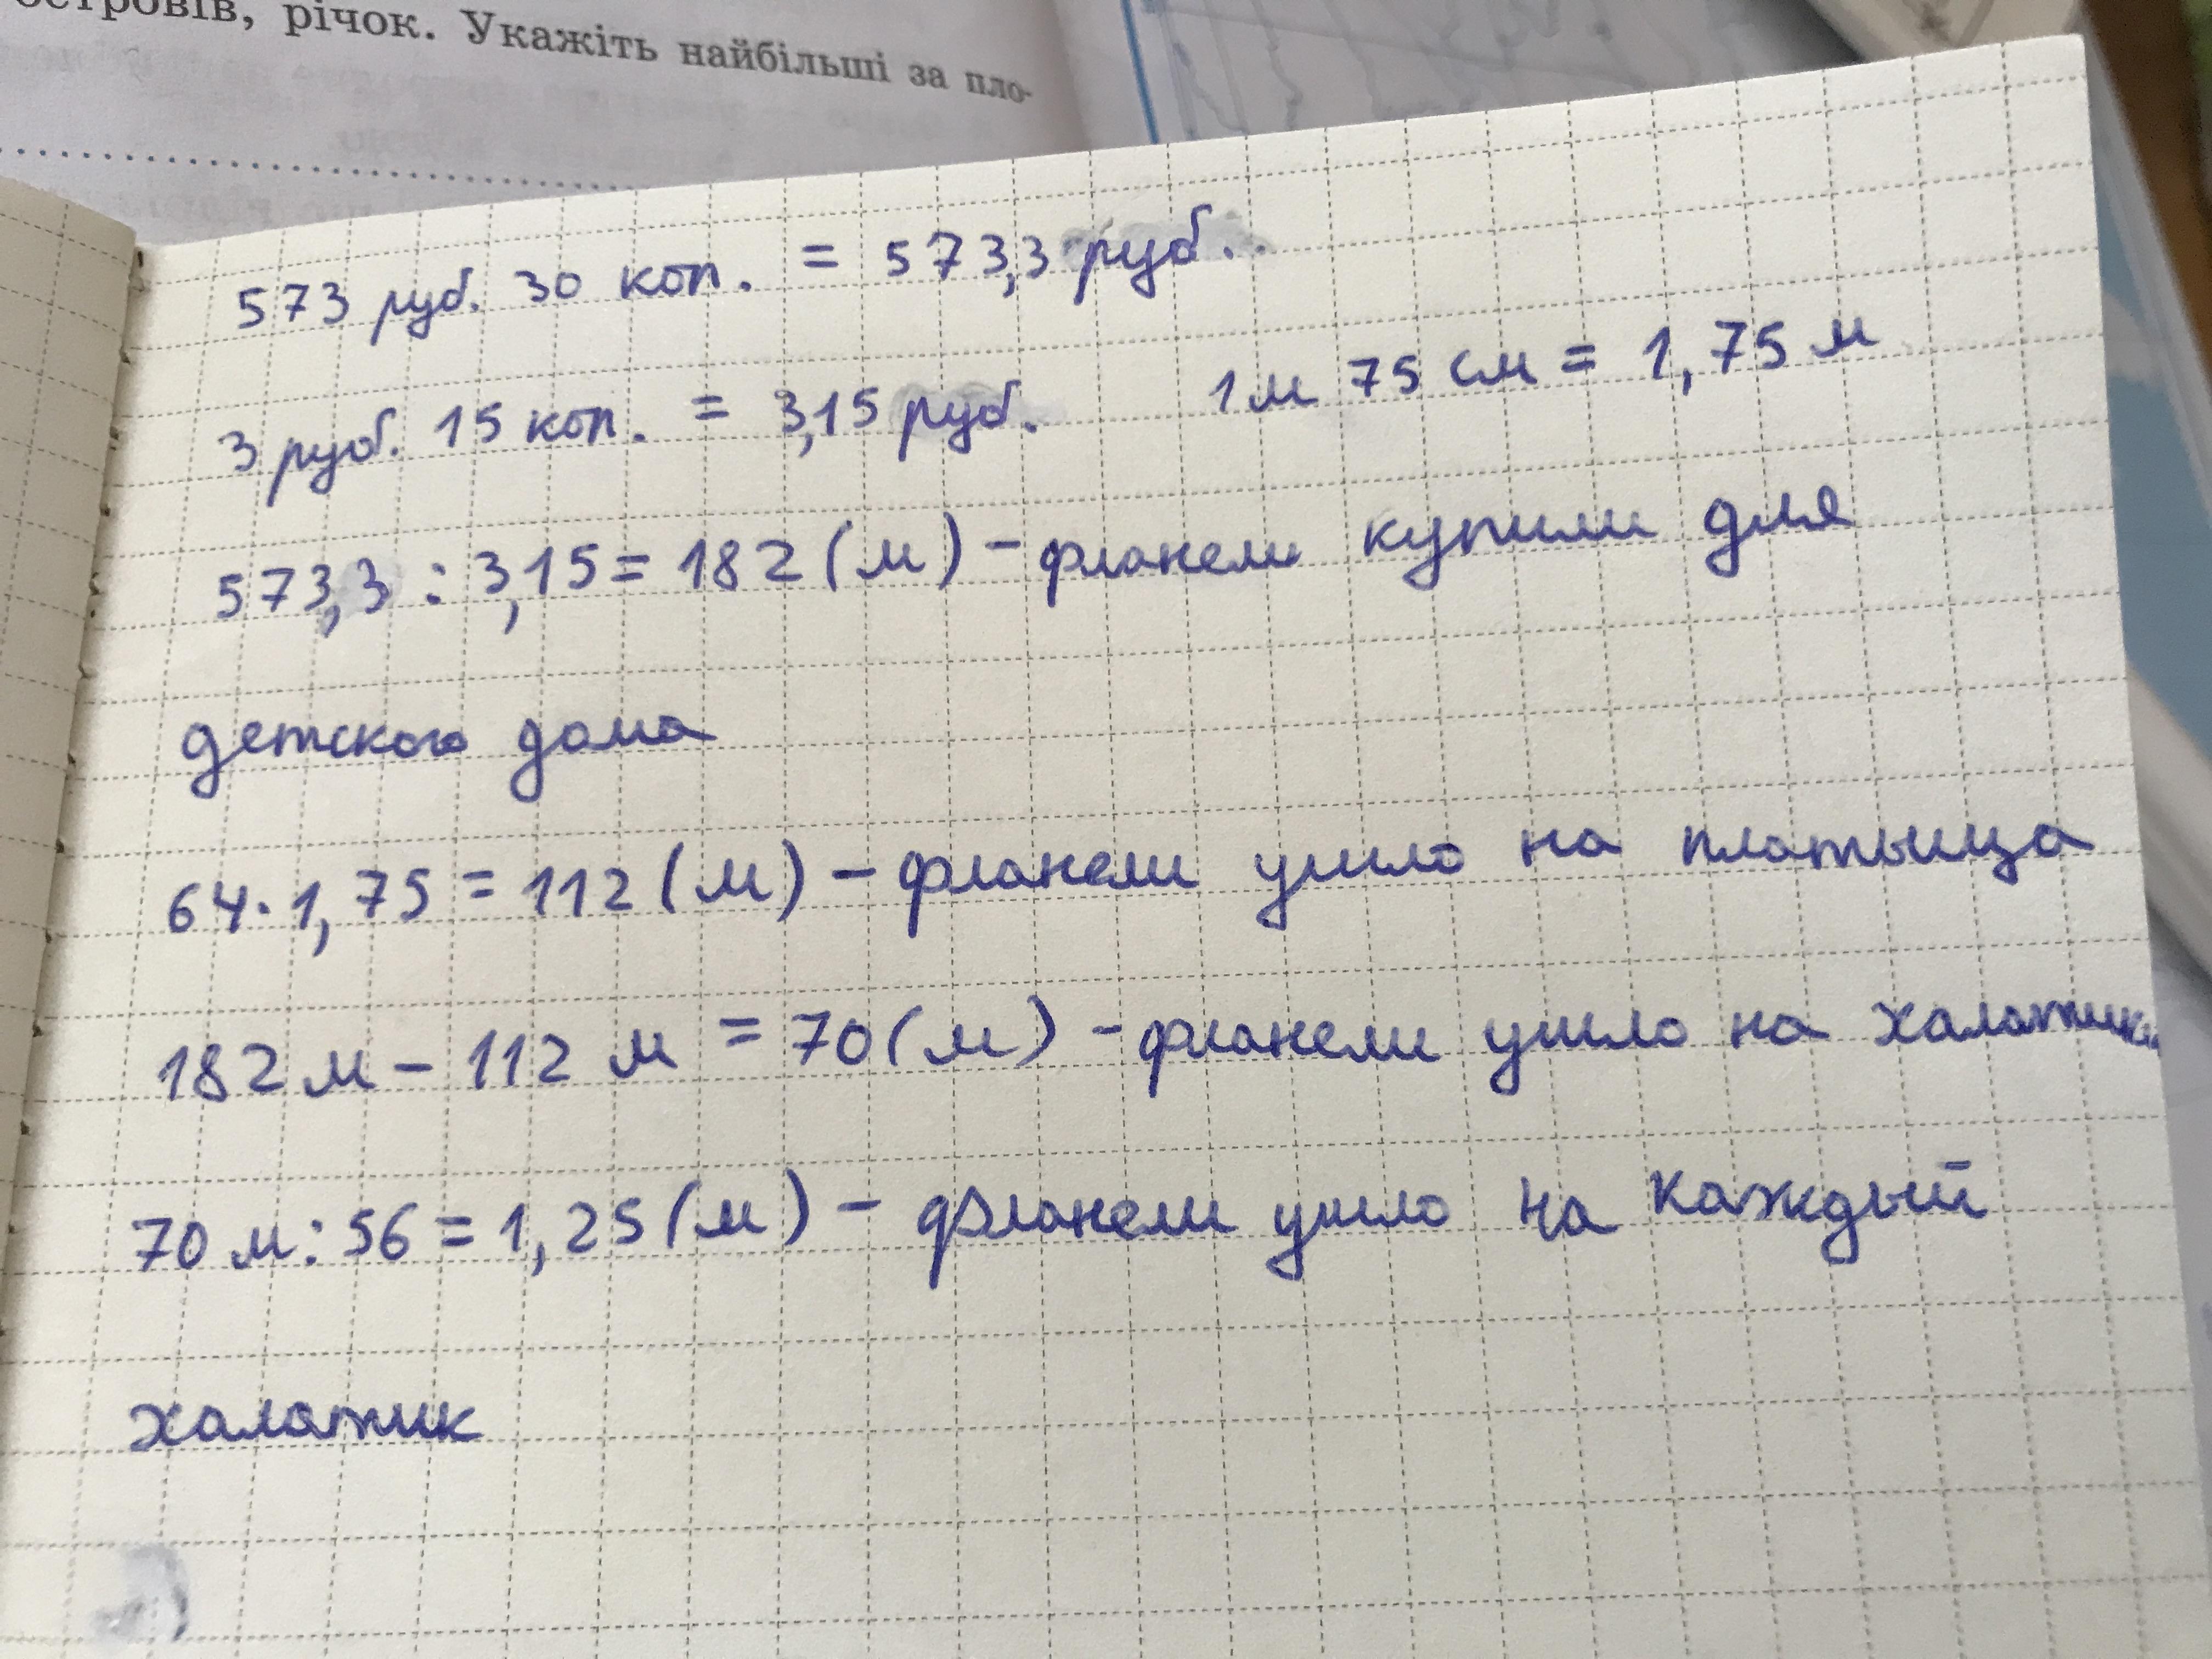 островів, річок. Укажіть найбільші за пло-
573 руб. 30 коп. = 573,3 руб.
3 руб. 15 коп. = 3,15 руб. 1 м 75 см = 1,75 м
573,3 : 3,15 = 182 (м) - фланели купили для
детского дома
64 · 1,75 = 112 (м) - фланели ушло на платьица
182 м - 112 м = 70 (м) - фланели ушло на халатики
70 м : 56 = 1,25 (м) - фланели ушло на каждый
халатик